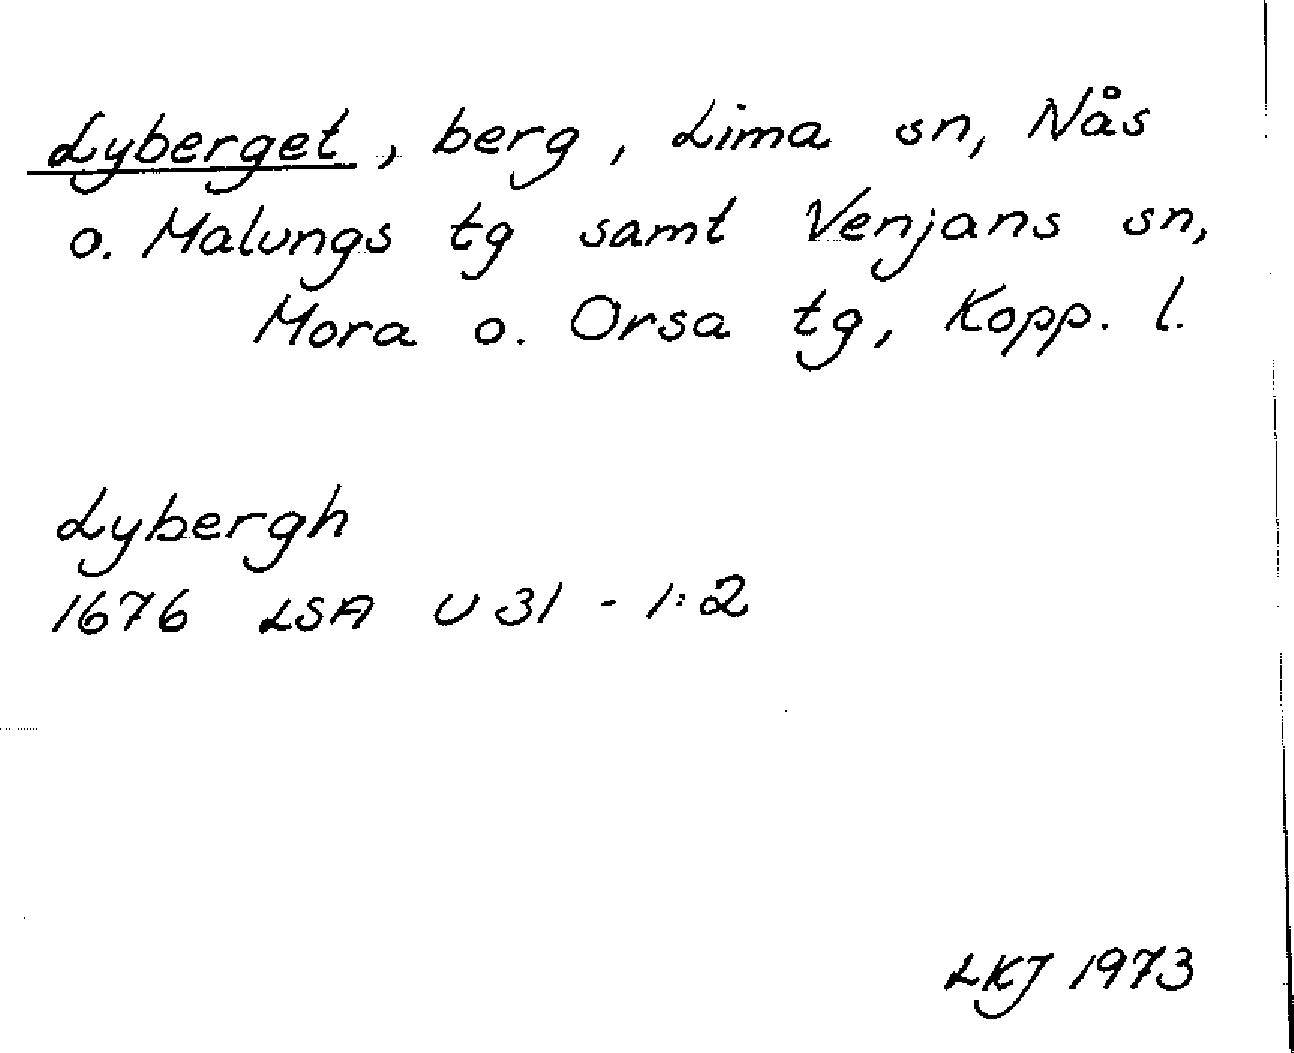 Lyberget, berg, Lima sn, Nås
o. Malungs tg samt Venjans sn,
Mora o. Orsa tg, Kopp. l.
Lybergh
1676 LSA U 31 - 1:2
LKJ 1973